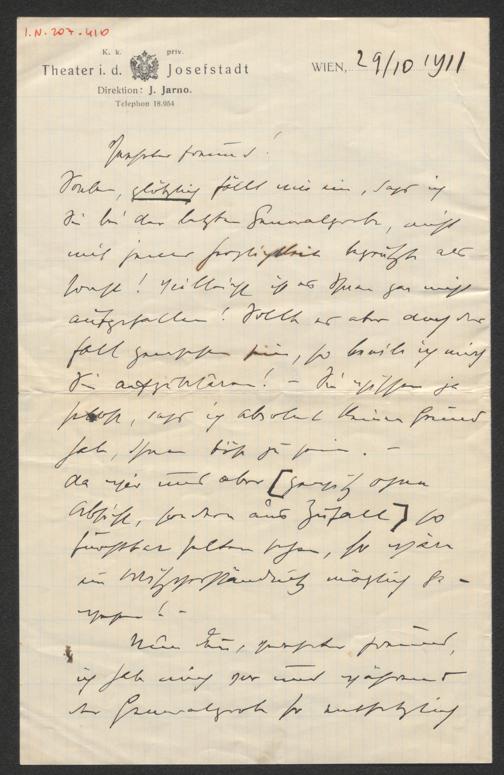 I.N. 207.410
K. k. priv.
Theater i. d. Josefstadt
Direktion: J. Jarno.
Telephon 18.964
WIEN, 29/10 1911
Freund!
Soeben, plötzlich fällt mir ein, dass ich
Sie bei der letzten Generalprobe, nicht
mit jener Herzlichkeit begrüsste als
sonst! Vielleicht ist es Ihnen gar nicht
aufgefallen! Sollte es aber doch der
Fall gewesen sein, so beeile ich mich
Sie aufzuklären! – Sie wissen ja
selbst, dass ich absolut keinen Grund
habe, Ihnen böse zu sein. –
da wir uns aber [gewiss ohne
Absicht, sondern aus Zufall] so
furchtbar selten sehen, so wäre
ein Missverständnis möglich ge-
wesen! –
Freund,
ich habe mich vor und während
der Generalprobe so entsetzlich